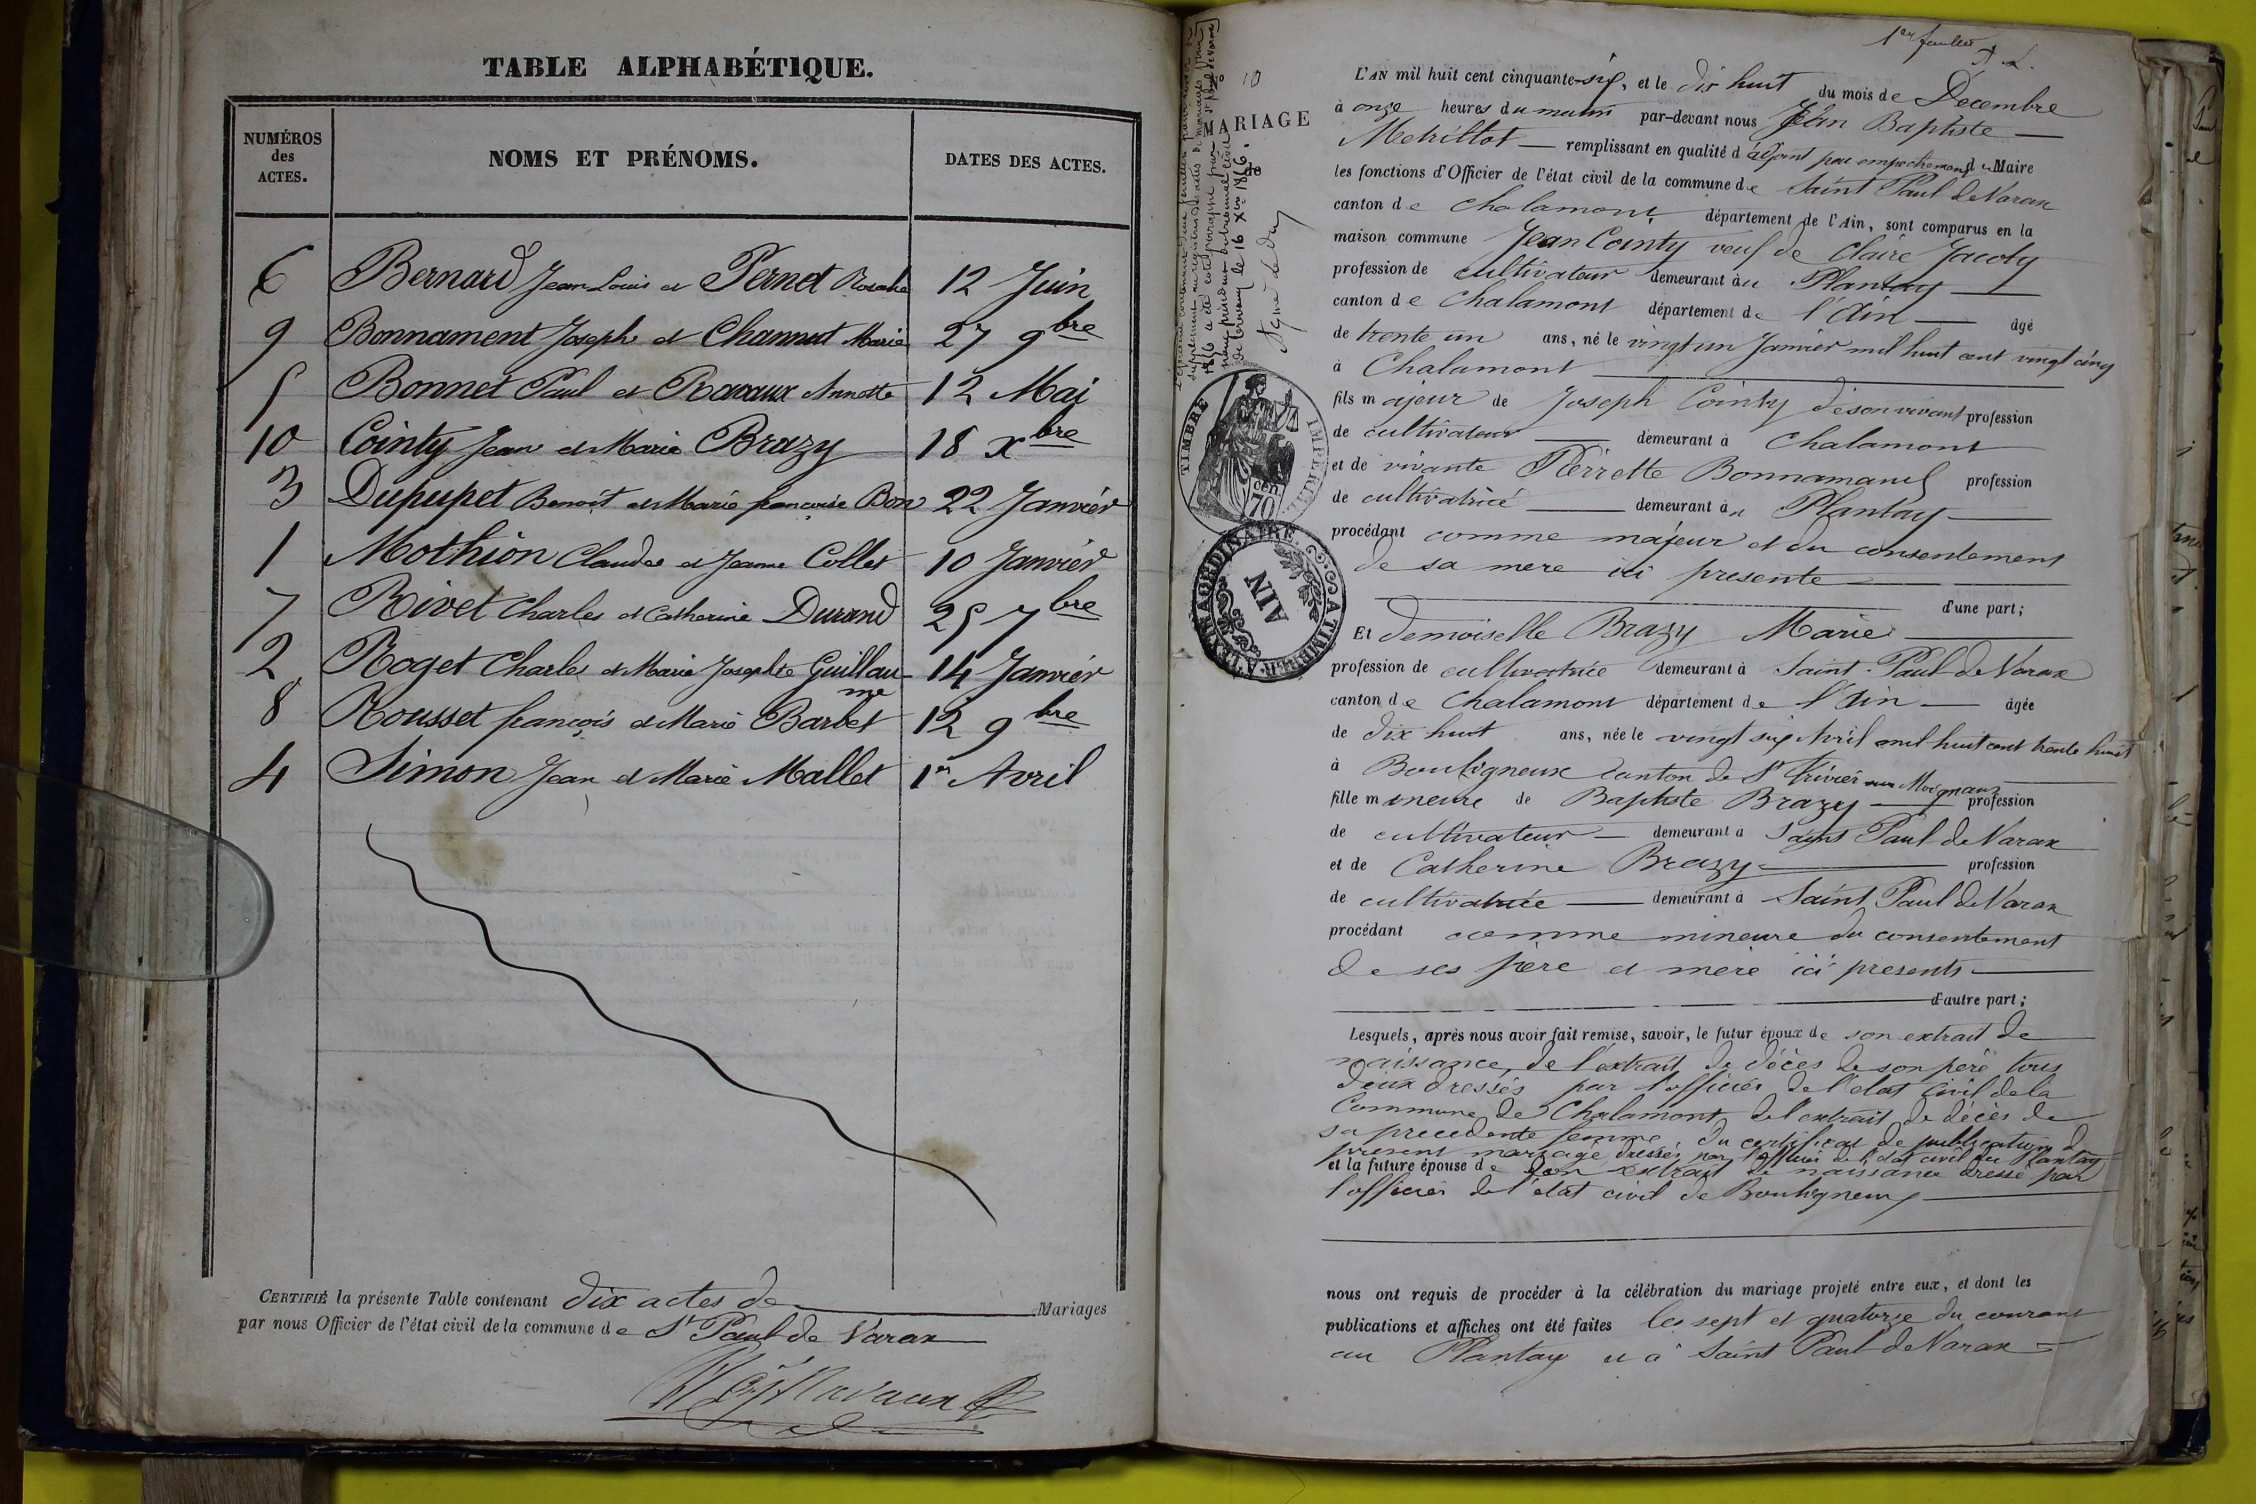 TABLE ALPHABÉTIQUE.
NUMÉROS des ACTES.
NOMS ET PRÉNOMS.
DATES DES ACTES.
6 Bernard Jean Louis et Pernet Rosalie 12 Juin
9 Bonnament Joseph et Channut Marie 27 9bre
5 Bonnet Paul et Ravaux Annette 12 Mai
10 Cointy Jean et Marie Brazy 18 xbre
3 Dupupet Benoît et Marie françoise Bon 22 Janvier
1 Mothion Claude et Jeanne Collet 10 Janvier
7 Rivet Charles et Catherine Durand 25 7bre
2 Roget Charles et Marie Josephte Guillau
me 14 Janvier
8 Rousset françois et Marie Barbet 12 9bre
4 Simon Jean et Marie Mallet 1er Avril
CERTIFIÉ la présente Table contenant dix actes de Mariages
par nous Officier de l'état civil de la commune de St Paul de Varax
1er feuillet
10
MARIAGE
signé
TIMBRE IMPÉRIAL
cen. 70
EXTRAORDINAIRE
AIN
L'AN mil huit cent cinquante-six, et le dix huit du mois de Decembre
à onze heures du matin par-devant nous Jean Baptiste
Metrillot remplissant en qualité d'adjoint par empechement de Maire
les fonctions d'Officier de l'état civil de la commune de Saint Paul de Varax
canton de Chalamont département de l'Ain, sont comparus en la
maison commune Jean Cointy veuf de Claire Jacoty
profession de cultivateur demeurant au Plantay
canton de Chalamont département de l'Ain âgé
de trente un ans, né le vingt un Janvier mil huit cent vingt cinq
à Chalamont
fils majeur de Joseph Cointy de son vivant profession
de cultivateur demeurant à Chalamont
et de vivante Pierrette Bonnamant profession
de cultivatrice demeurant au Plantay
procédant comme majeur et du consentement
de sa mere ici presente
d'une part;
Et demoiselle Brazy Marie
profession de cultivatrice demeurant à Saint Paul de Varax
canton de Chalamont département de l'Ain âgée
de dix huit ans, née le vingt six Avril mil huit cent trente huit
à Bouligneux Canton de St Trivier sur Moignans
fille mineure de Baptiste Brazy profession
de cultivateur demeurant à Saint Paul de Varax
et de Catherine Brazy profession
de cultivatrice demeurant à Saint Paul de Varax
procédant comme mineure du consentement
de ses père et mere ici presents
d'autre part;
Lesquels, après nous avoir fait remise, savoir, le futur époux de son extrait de
naissance, de l'extrait de décès de son père tous
deux dressés par l'officier de l'etat civil de la
Commune de Chalamont de l'extrait de décès de
sa precedente femme, du certificat de publication de
present mariage dressés par l'officier de l'état civil du Plantay
et la future épouse de son extrait de naissance dressé par
l'officier de l'état civil de Bouligneux
nous ont requis de procéder à la célébration du mariage projeté entre eux, et dont les
publications et affiches ont été faites les sept et quatorze du courant
au Plantay et à Saint Paul de Varax